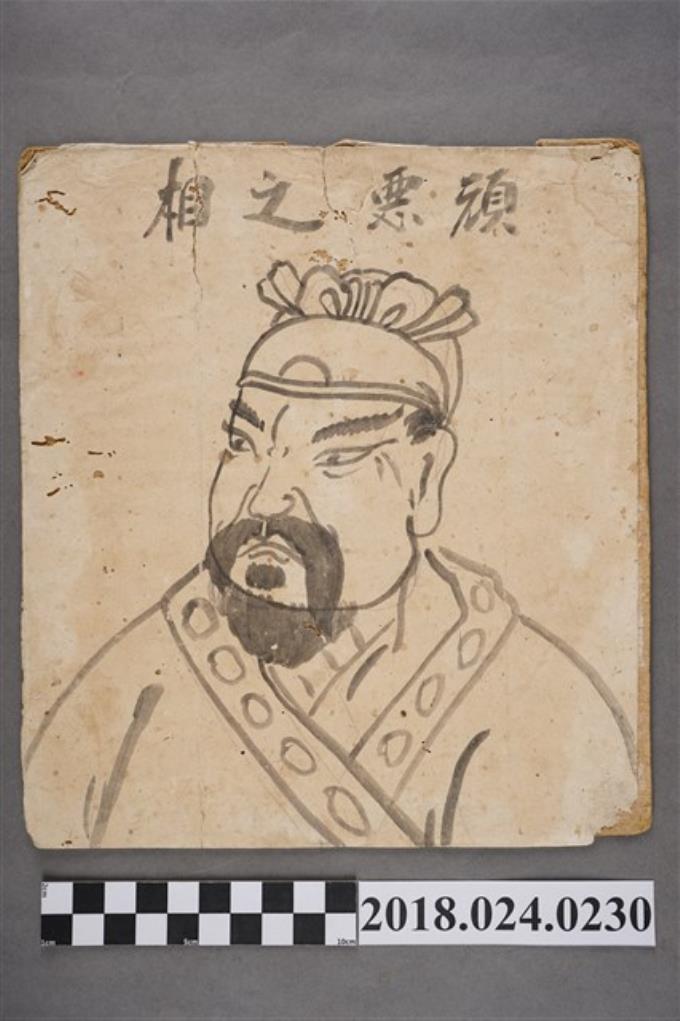 頑悪之相
2cm
1cm 5cm 10cm
2018.024.0230